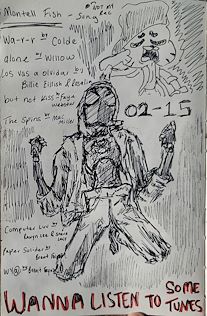 Montell Fish - Song
Wa-r-r by Colde
alone by Willow
Los vas a olvidar by
Billie Eillish & Rosalia
but not kiss by Faye
Webster
The Spins by Mac
Miller
02-15
Computer Luv by
Paper Soldier by Brent Faiyaz
WY@ by Brent Faiyaz
WANNA LISTEN TO SOME
TUNES